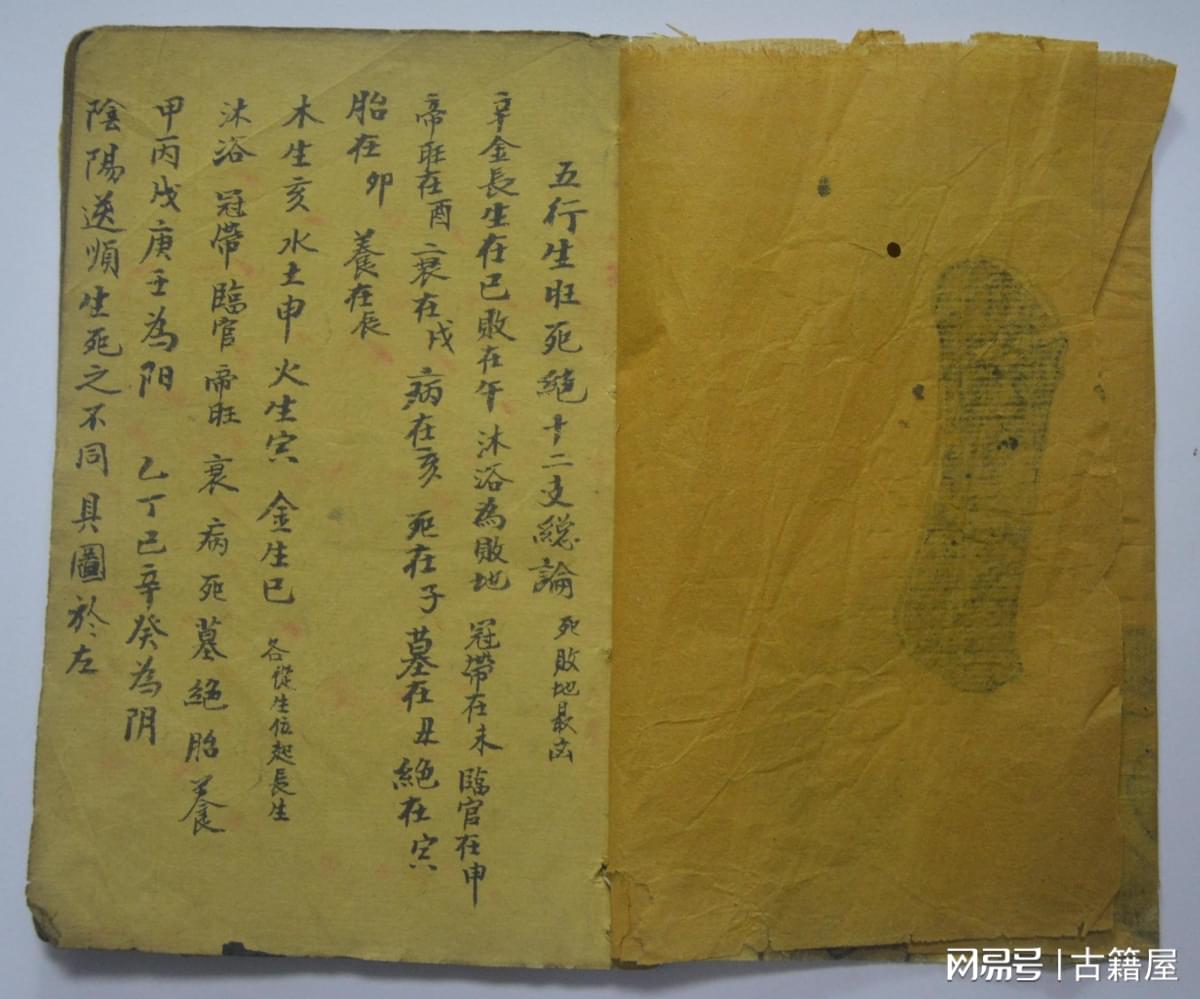 五行生旺死絶十二支総論 死敗地最凶
辛金長生在巳敗在午 沐浴為敗地 冠帶在未 臨官在申
帝旺在酉 衰在戌 病在亥 死在子 墓在丑 絶在寅
胎在卯 養在辰
木生亥 水土申 火生寅 金生巳 各從生位起長生
沐浴 冠帶 臨官 帝旺 衰 病 死 墓 絶 胎 養
甲丙戊庚壬為阳 乙丁己辛癸為阴
陰陽逆順生死之不同具圖於左
网易号 | 古籍屋